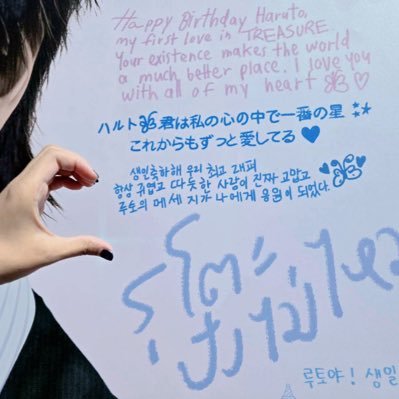 Happy Birthday Haruto,
my first love in TREASURE
Your existence makes the world
a much better place. I love you
with all of my heart
ハルト 君は私の心の中で一番の星
これからもずっと愛してる
생일축하해 우리 최고 래퍼
항상 귀엽고 따듯한 사람이 진짜 고맙고
루토의 메세지가 나에게 응원이 되었다.
루토야! 생일